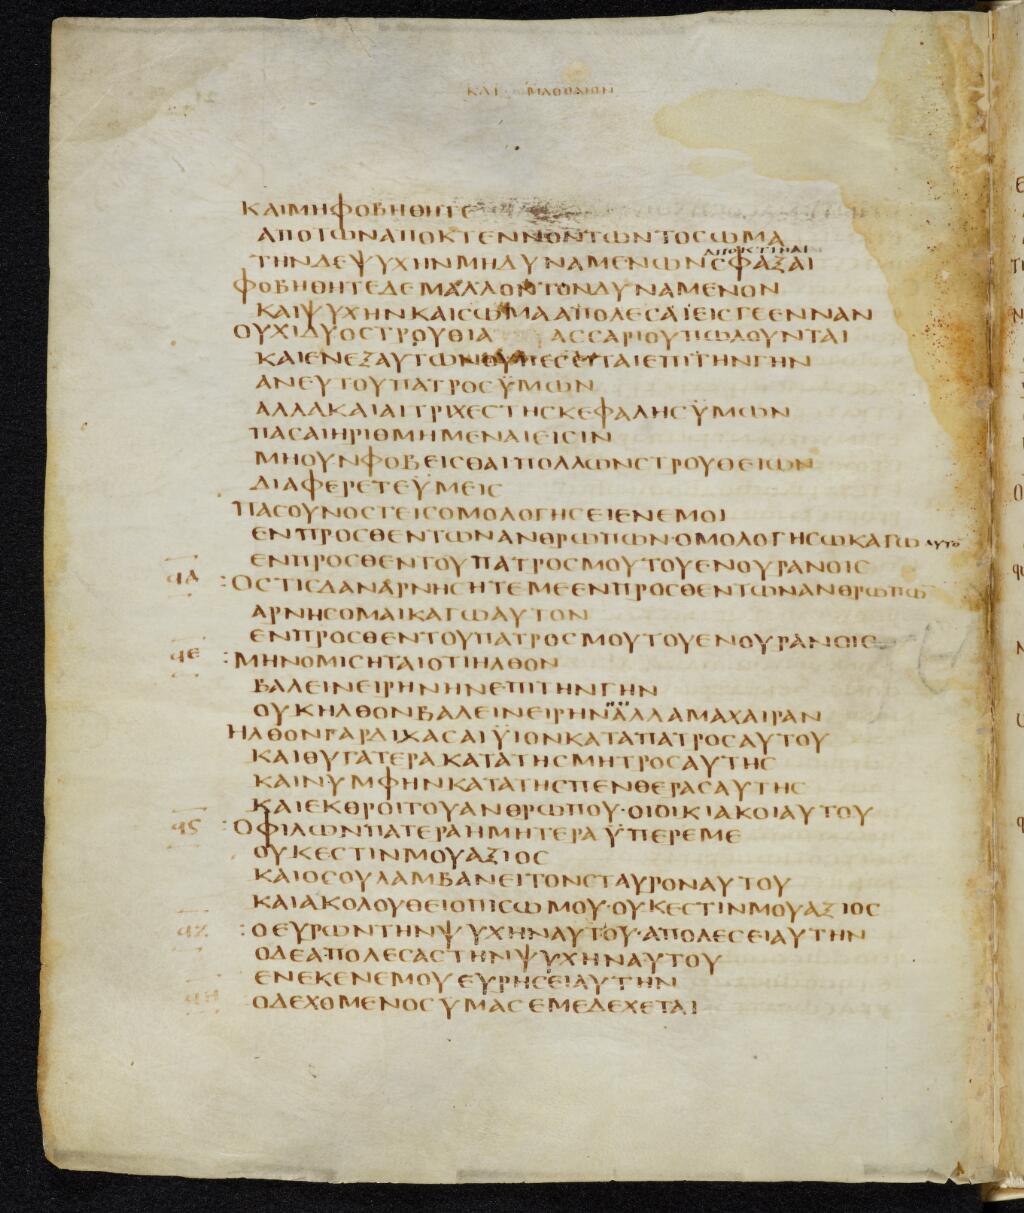 ΚΑΤ ΜΑΘΘΑΙΟΝ
ΚΑΙΜΗΦΟΒΗΘΗΤΕ
ΑΠΟΤΩΝΑΠΟΚΤΕΝΝΟΝΤΩΝΤΟΣΩΜΑ
ΑΠΟΚΤΙΝΑΙ
ΤΗΝΔΕΨΥΧΗΝΜΗΔΥΝΑΜΕΝΩΝΣΦΑΞΑΙ
ΦΟΒΗΘΗΤΕΔΕΜΑΛΛΟΝΤΟΝΔΥΝΑΜΕΝΟΝ
ΚΑΙΨΥΧΗΝΚΑΙΣΩΜΑΑΠΟΛΕΣΑΙΕΙΣΓΕΕΝΝΑΝ
ΟΥΧΙΔΥΟΣΤΡΟΥΘΙΑ ΑΣΣΑΡΙΟΥΠΩΛΟΥΝΤΑΙ
ΚΑΙΕΝΕΞΑΥΤΩΝΟΥΠΕΣΕΙΤΑΙΕΠΙΤΗΝΓΗΝ
ΑΝΕΥΤΟΥΠΑΤΡΟΣΫΜΩΝ
ΑΛΛΑΚΑΙΑΙΤΡΙΧΕΣΤΗΣΚΕΦΑΛΗΣΫΜΩΝ
ΠΑΣΑΙΗΡΙΘΜΗΜΕΝΑΙΕΙΣΙΝ
ΜΗΟΥΝΦΟΒΕΙΣΘΑΙΠΟΛΛΩΝΣΤΡΟΥΘΕΙΩΝ
ΔΙΑΦΕΡΕΤΕΫΜΕΙΣ
ΠΑΣΟΥΝΟΣΤΕΙΣΟΜΟΛΟΓΗΣΕΙΕΝΕΜΟΙ
ΕΝΠΡΟΣΘΕΝΤΩΝΑΝΘΡΩΠΩΝ·ΟΜΟΛΟΓΗΣΩΚΑΓΩ ΑΥΤΟ
ΕΝΠΡΟΣΘΕΝΤΟΥΠΑΤΡΟΣΜΟΥΤΟΥΕΝΟΥΡΑΝΟΙΣ
ϥΔ :ΟΣΤΙΣΔΑΝΑΡΝΗΣΗΤΕΜΕΕΝΠΡΟΣΘΕΝΤΩΝΑΝΘΡΩΠΩ
ΑΡΝΗΣΟΜΑΙΚΑΓΩΑΥΤΟΝ
ΕΝΠΡΟΣΘΕΝΤΟΥΠΑΤΡΟΣΜΟΥΤΟΥΕΝΟΥΡΑΝΟΙΣ
ϥΕ :ΜΗΝΟΜΙΣΗΤΑΙΟΤΙΗΛΘΟΝ
ΒΑΛΕΙΝΕΙΡΗΝΗΝΕΠΙΤΗΝΓΗΝ
ΟΥΚΗΛΘΟΝΒΑΛΕΙΝΕΙΡΗΝΑΛΛΑΜΑΧΑΙΡΑΝ
ΗΛΘΟΝΓΑΡΔΙΧΑΣΑΙΫΙΟΝΚΑΤΑΠΑΤΡΟΣΑΥΤΟΥ
ΚΑΙΘΥΓΑΤΕΡΑΚΑΤΑΤΗΣΜΗΤΡΟΣΑΥΤΗΣ
ΚΑΙΝΥΜΦΗΝΚΑΤΑΤΗΣΠΕΝΘΕΡΑΣΑΥΤΗΣ
ΚΑΙΕΚΘΡΟΙΤΟΥΑΝΘΡΩΠΟΥ·ΟΙΟΙΚΙΑΚΟΙΑΥΤΟΥ
ϥϚ :ΟΦΙΛΩΝΠΑΤΕΡΑΗΜΗΤΕΡΑΫΠΕΡΕΜΕ
ΟΥΚΕΣΤΙΝΜΟΥΑΞΙΟΣ
ΚΑΙΟΣΟΥΛΑΜΒΑΝΕΙΤΟΝΣΤΑΥΡΟΝΑΥΤΟΥ
ΚΑΙΑΚΟΛΟΥΘΕΙΟΠΙΣΩΜΟΥ·ΟΥΚΕΣΤΙΝΜΟΥΑΞΙΟΣ
ϥΖ :ΟΕΥΡΩΝΤΗΝΨΥΧΗΝΑΥΤΟΥ·ΑΠΟΛΕΣΕΙΑΥΤΗΝ
ΟΔΕΑΠΟΛΕΣΑΣΤΗΝΨΥΧΗΝΑΥΤΟΥ
ΕΝΕΚΕΝΕΜΟΥΕΥΡΗΣΕΙΑΥΤΗΝ
ϥΗ ΟΔΕΧΟΜΕΝΟΣΥΜΑΣΕΜΕΔΕΧΕΤΑΙ